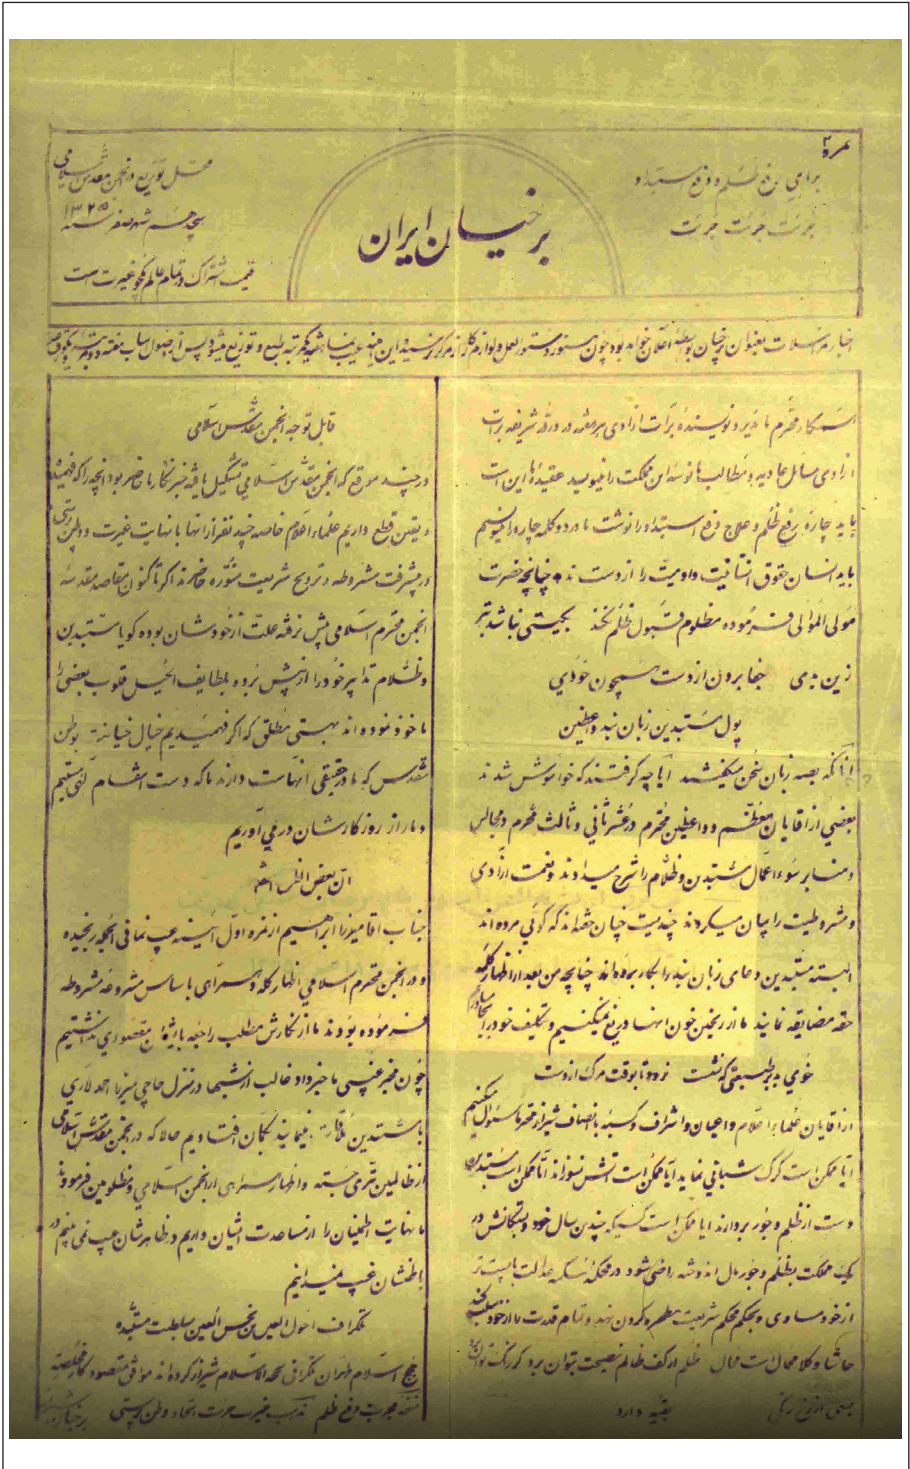 نمره ۲
برای رفع ظلم و رفع استبداد
جرئت جرئت جرئت
برخیان ایران
محل توزیع در انجمن مقدس اسلامی
هیجدهم شهر صفر سنه ۱۳۲۵
قیمت اشتراک در تمام عالم یکجو غیرت است
از ادی مسائل عادیه و مطالب مانوسه این مملکت را مینویسید عقیده ما این است
باید چاره رفع ظلم و علاج رفع استبداد را نوشت ما در دو کلمه چاره را میگوئیم
باید انسان حقوق انسانیت و ادمیت را از دست ندهد چنانچه حضرت
مولی الموالی فرموده مظلوم قبول ظلم نکند بگیتی نباشد بتر
زین بدی جفا بردن از دست همچون خودی
پول مستبدین زبان بند واعظین
آنانکه بصد زبان سخن میگفتند آیا چه گرفتند که خواموش شدند
بعضی از اقایان معظم و واعظین محترم در عشر ثانی و ثالث محرم و مجالس
و منابر سوء اعمال مستبدین و ظلام را شرح میدادند و نعمت ازادی
و مشروطیت را بیان میکردند چندیست چنان خفته اند که گوئی مرده اند
البته مستبدین دعای زبان بند را بکار برده اند چنانچه من بعد از اظهار کلمه
حقه مضایقه نمایند ما از ریختن خون انها دریغ نمیکنیم و تکلیف خود را
خوی بد بر طبیعتی که نشست نرود تا بوقت مرک از دست
از اقایان علماء اعلام و اعیان و اشراف و کسبه با انصاف شیراز محترما سئوال میکنیم
ایا ممکن است گرگ شبانی نماید ایا ممکن است آتش نسوزاند ایا ممکن است مستبدین
دست از ظلم و جور بردارند ایا ممکن است کسیکه چندین سال خود و بستگانش در
یک مملکت بظلم و جور مال اندوخته راضی شود در محکمه عدالت با پست تر
از خود مساوی و بحکم محکم شریعت مطهره گردن نهد و تمام قدرت را از خود سلب کند
حاشا و کلا محال است محال ظلم از کف ظالم بنصیحت بتوان برد گر رنگ توان برد
بسعی از رخ زنگی بقیه دارد
قابل توجه انجمن مقدس اسلامی
در چند موقع که انجمن مقدس اسلامی تشکیل یافته خبرنگار ما حاضر بود آنچه را که فهمیده
و یقین قطع داریم علماء اعلام خاصه چند نفر از انها با نهایت غیرت و وطن پرستی
در پیشرفت مشروطه و ترویج شریعت منوره حاضرند اگر تاکنون مقاصد مقدسه
انجمن محترم اسلامی پیش نرفته علت از خودشان بوده گویا مستبدین
و ظلام تدابیر خود را از پیش برده بلطایف الحیل قلوب بعضی را
ماخوذ نموده اند بهستی مطلق که اگر فهمیدیم خیال خیانت بوطن
مقدس که مادر حقیقی انهاست دارند ما که دست انتقام الهی هستیم
دمار از روزگارشان در می آوریم
ان بعض الظن اثم
جناب اقا میرزا ابراهیم از نمره اول آئینه غیب نما فی الجمله رنجیده
و در انجمن محترم اسلامی اظهار گله و همرای با اساس مشروعه مشروطه
فرموده بودند ما از نگارش مطلب راجعه بایشان مقصودی نداشتیم
چون مخبر غیبی ما خبر داد غالب از شبها در منزل حاجی میرزا احمد لاری
با مستبدین ملاقات مینمایند بگمان افتادیم حالا که در انجمن مقدس اسلامی
از ظالمین تبری جسته و اظهار همراهی از انجمن اسلامی و مظلومین فرمودند
ما نهایت اطمینان را از مساعدت ایشان داریم در ظاهرشان عیب نمی بینم و در
باطنشان غیب نمیدانیم
تلگراف احول العین بن نحس العین بسلطنت مستبده